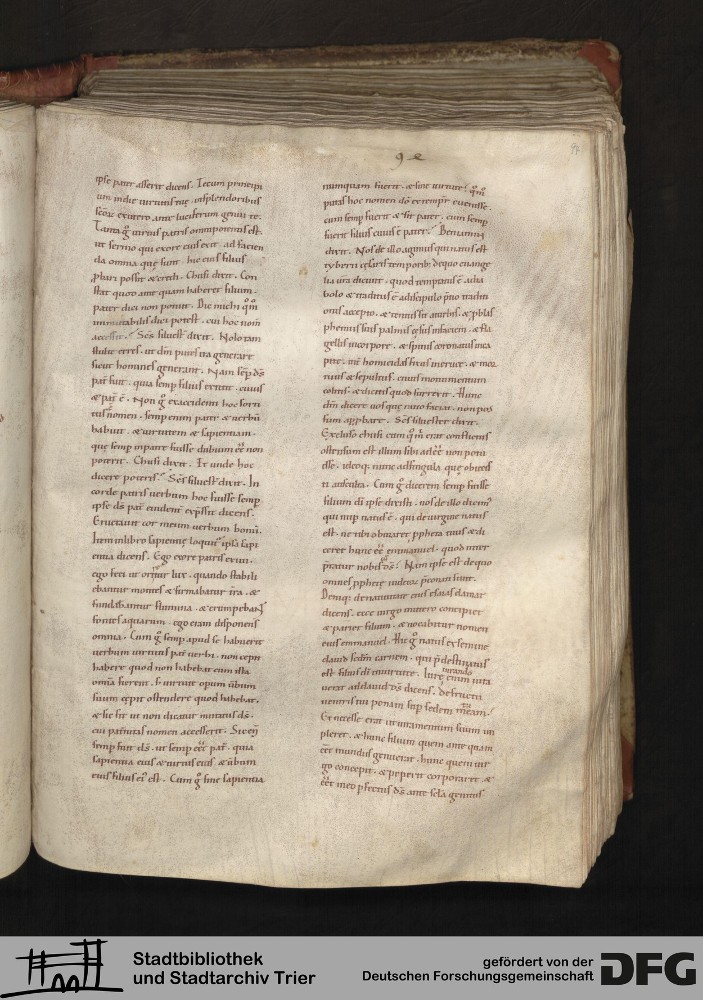 ipse pater asserit dicens. Tecum principi
um in die virtutis tuę. in splendoribus
sc̄or̄ ex utero ante luciferum genui te.
Tanta g̊ virtus patris omnipotentis est.
ut sermo qui ex ore eius exit. ad facien
da omnia quę sunt. hic eius filius
ꝓbari possit & credi. Chusi dixit. Con
stat quod ante quam haberet filium.
pater dici non potuit. Dic michi q̄m̄
inmutabilis dici potest. cui hoc nom̄
accessit. Sc̄s siluest̄ dixit. Nolo tam
stulte erres. ut dm̄ putes ita generare
sicut homines generant. Nam semp̄ ds̄
pat̄ fuit. quia semp̄ filius extitit. cuius
& pat̄ ē. Non g̊ ex accidenti hoc sorti
tus nomen. semp̄ enim pater & verbū
habuit. & virtutem & sapientiam.
quę semp̄ in patre fuisse dubium ee᷎ non
poterit. Chusi dixit. Et unde hoc
docere poteris? Sc̄s siluest̄ dixit. In
corde patris verbum hoc fuisse semp̄
ipse ds̄ pat̄ euident̄ exp̄ssit dicens.
Eructauit cor meum uerbum bonū.
Item in libro sapientię loquit᷎ ipsa sapi
entia dicens. Ego ex ore patris exiui.
ego feci ut oriret᷎ lux. quando stabili
ebantur montes & firmabatur t̄ra. &
fundabantur flumina. & erumpebant
fontes aquarum. ego eram disponens
omnia. Cum g̊ semp̄ apud se habuerit
verbum virtutis pat̄ verbi. non cepit
habere quod non habebat cum ista
om̄ia fierent. s; virtute opum ūbum
suum cępit ostendere quod habebat.
& sic fit ut non dicatur mutatus ds̄.
cui pat̄nitatis nomen accesserit. Sic eni᷎
semp̄ fuit ds̄. ut semp̄ ee᷎t pat̄. quia
sapientia eius & virtus eius & ūbum
eius filius ei᷎ est. Cum g̊ sine sapientia
9 e
97
numquam fuerit. & sine virtute. q̄m̄
putas hoc nomen dō ex temp̄r euenisse.
cum semp̄ fuerit & sit pater. cum semp̄
fuerit filius cuius ē pater? Beniamin
dixit. Nos de illo agimus qui natus est
tyberii cęsaris temporib; de quo euange
lia ūra dicunt. quod temptatus ē a dia
bolo & traditus ē a discipulo p̄cio traditi
onis accepto. & tentus sit a turbis. & ꝓbris
cęsus in faciem. & fla
gellis in corpore. & spinis coronatus in ca
pite. & mor
tuus & sepultus. cuius monumentum
colitis. & dicitis quod surrexit. Hunc
dm̄ dicere uos quę ratio faciat. non pos
sum app̄hare. Sc̄s siluester dixit.
Excluso chusi cum q̄m̄ erat confitentis
ostensum est illum sibi ad ee᷎ non potu
isse. ideoq; nunc ad singula quę obicis
ti ausculta. Cum g̊ dicerem semp̄ fuisse
filium dī ipse dixisti. nos de illo dicim᷎
qui nup̄ natus ē. qui de uirgine natus
est. ne tibi obuiaret ꝓpheta tuus & di
ceret hunc ee᷎ emmanuel. quod inter
p̄tatur nobiscū ds̄. Nam ipse est de quo
omnes ꝓphetę iudeor̄ p̄conati sunt.
Deniq; denuntiatur eius esaias clamat
dicens. ecce uirgo in utero concipiet
& pariet filium. & uocabitur nomen
eius emmanuel. Hic g̊ natus ex semine
dauid scdm̄ carnem. qui p̄destinatus
est filius dī in uirtute. iure iurando enim iura
uerat ad dauid ds̄ dicens. de fructu
uentris tui ponam sup̄ sedem meam.
Et necesse erat ut iuramentum suum im
pleret. & hunc filium quem ante quam
ee᷎t mundus genuerat. hunc quem uir
go concepit. & peperit corporaret. &
ds̄ ante scl̄a genitus
Stadtbibliothek
und Stadtarchiv Trier
gefördert von der
Deutschen Forschungsgemeinschaft
DFG